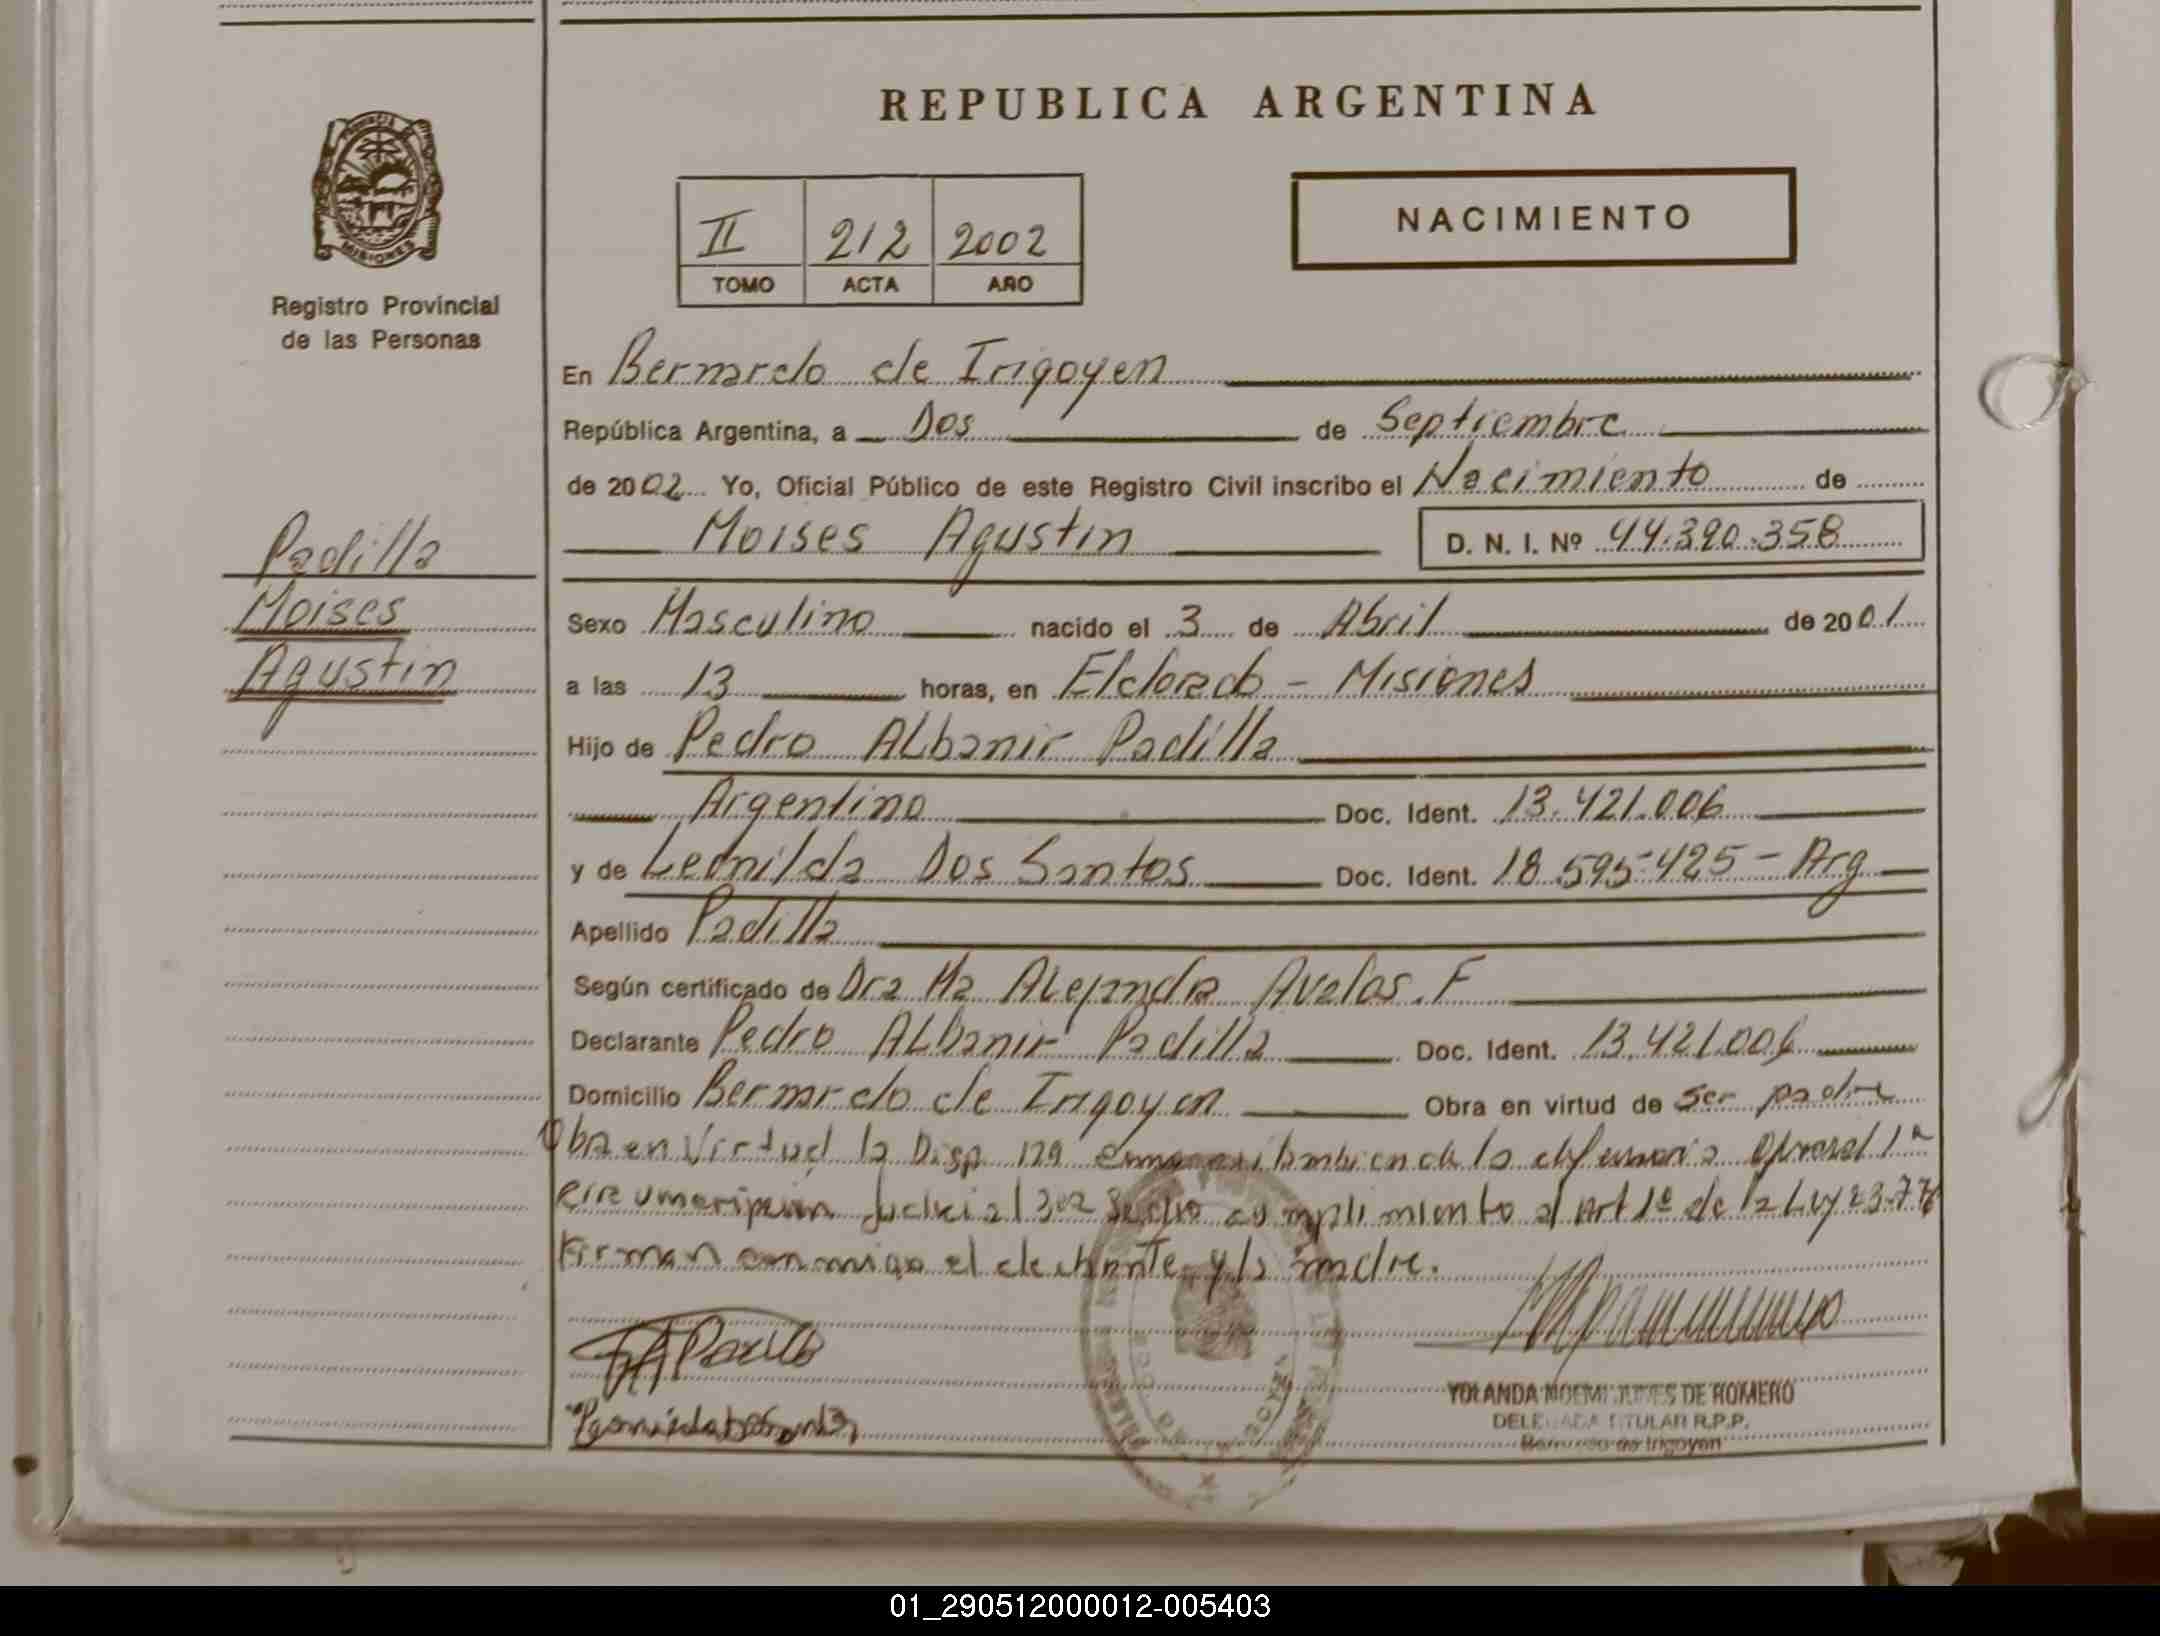 REPUBLICA ARGENTINA
PROVINCIA DE
MISIONES
Registro Provincial
de las Personas
II 212 2002
TOMO ACTA AÑO
NACIMIENTO
En Bernardo de Irigoyen
República Argentina, a Dos de Septiembre
de 2002 Yo, Oficial Público de este Registro Civil inscribo el Nacimiento de
Moises Agustin D. N. I. Nº 44.390.358
Padilla
Moises
Agustin
Sexo Masculino nacido el 3 de Abril de 2001
a las 13 horas, en Eldorado - Misiones
Hijo de Pedro Albanir Padilla
Argentino Doc. Ident. 13.421.006
y de Leonilda Dos Santos Doc. Ident. 18.595.425 - Arg
Apellido Padilla
Según certificado de Dra Ma Alejandra Avalos. F
Declarante Pedro Albanir Padilla Doc. Ident. 13.421.006
Domicilio Bernardo de Irigoyen Obra en virtud de ser padre
Obra en Virtud la Disp. 129 de la
Judicial 3ra cumplimiento al Art 1º de la Ley 23.776
Firman conmigo el y la madre.
YOLANDA NOEMI DE ROMERO
DELEGADA TITULAR R.P.P.
Bernardo de Irigoyen
01_290512000012-005403